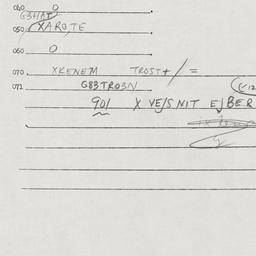 040 O
G3HAT
050 XAROTE
060 O
070 XKENEM TROST+/=
071 G83TRO3N
901 X VE/SNIT E/BER